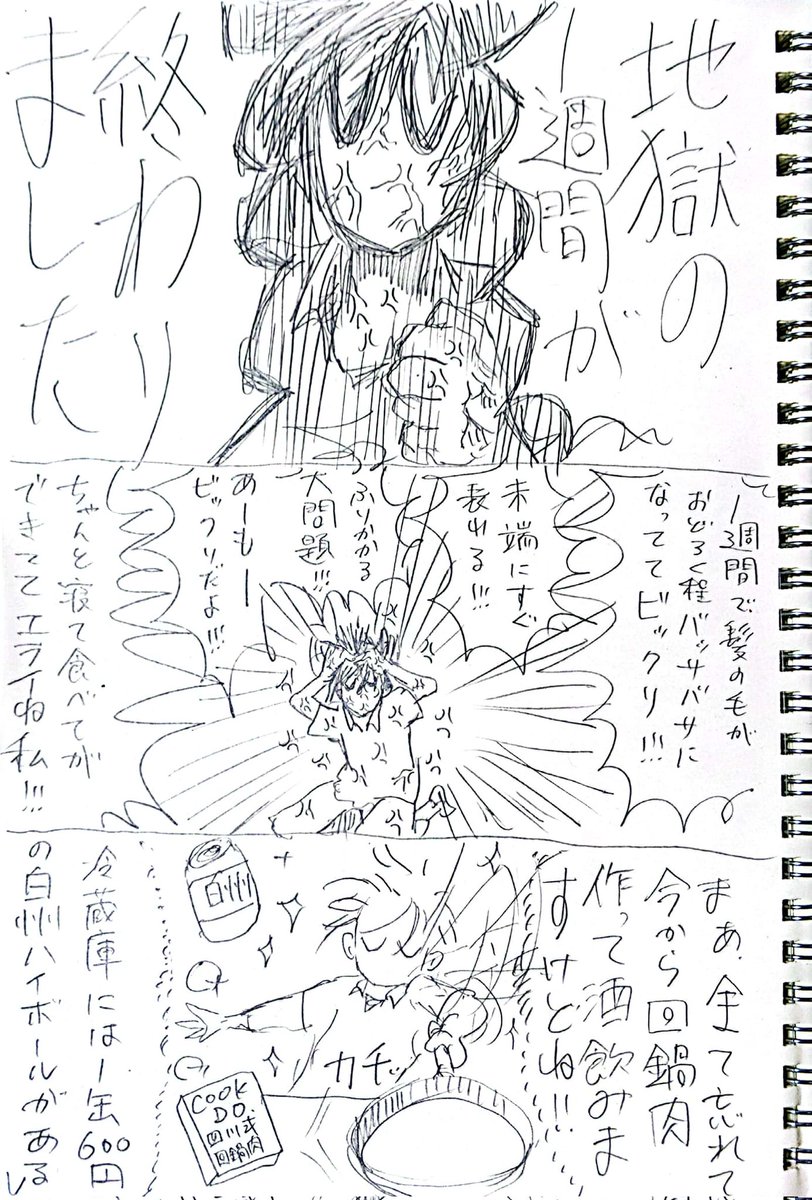 地獄の
一週間が
終わり
ました
一週間で髪の毛が
おどろく程バッサバサに
なっててビックリ!!!
末端にすぐ
表れる!!!
ふりかかる
大問題!!!
あーもー
ビックリだよ!!!
ちゃんと寝て食べてが
できててエライね私!!!
まぁ、全て忘れて
今から回鍋肉
作って酒飲みま
すけどね!!
カチッ
白州
COOK
DO
四川式
回鍋肉
冷蔵庫には1缶600円
の白州ハイボールがあるし